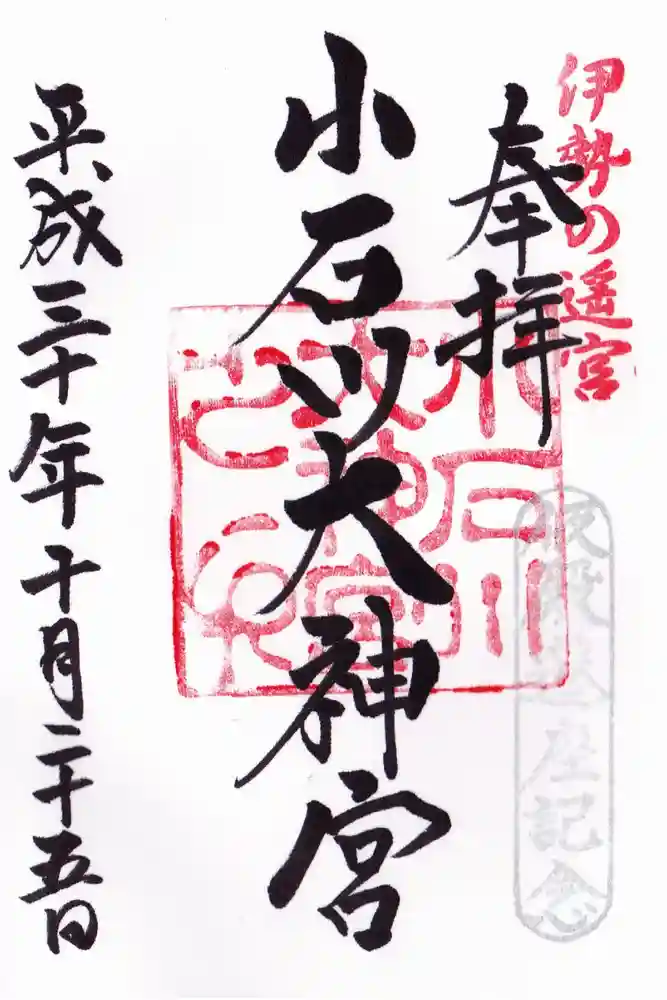 伊勢の遥宮
奉拝
小石川大神宮
小石川
大神宮
之印
仮殿遷座記念
平成三十年十月二十五日